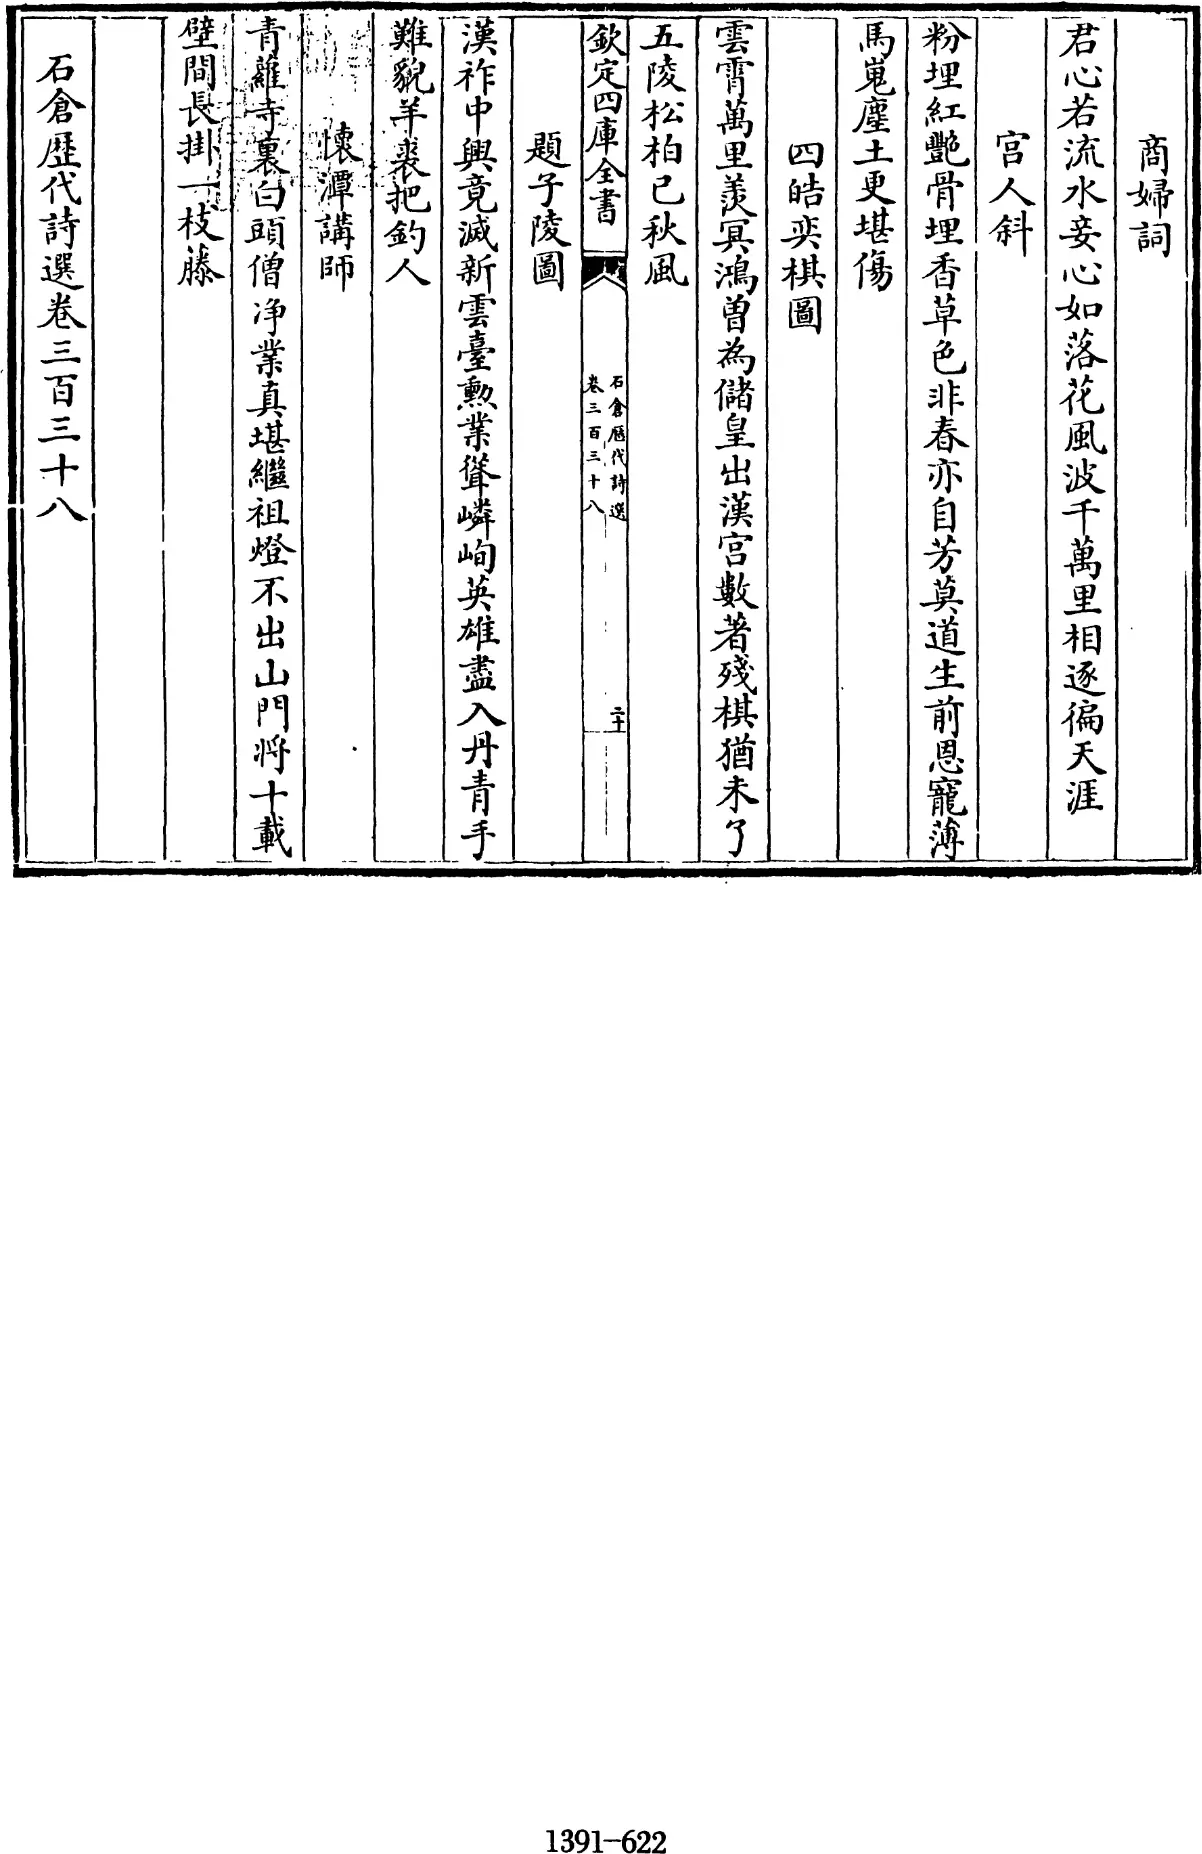 商婦詞
君心若流水妾心如落花風波千萬里相逐徧天涯
宫人斜
粉埋紅艷骨埋香草色非春亦自芳莫道生前恩寵薄
馬嵬塵土更堪傷
四皓奕棋圖
雲霄萬里羡冥鴻曾為儲皇出漢宫數著殘棋猶未了
五陵松柏已秋風
欽定四庫全書
石倉歴代詩選
卷三百三十八
二十
題子陵圖
漢祚中興竟滅新雲臺勲業聳嶙峋英雄盡入丹青手
難貌羊裘把釣人
懷潭講師
青蘿寺裏白頭僧净業真堪繼祖燈不出山門将十載
壁間長掛一枝藤
石倉歴代詩選卷三百三十八
1391-622